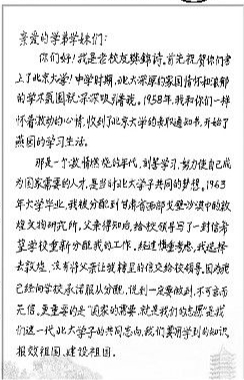 亲爱的学弟学妹们：
你们好！我是老校友樊锦诗。首先祝贺你们考
上了北京大学！中学时期，北大深厚的家国情怀和浓郁
的学术氛围就深深吸引着我。1958年，我和你们一样
怀着激动的心情，收到了北京大学的录取通知书，开始了
燕园的学习生活。
那是一个激情燃烧的年代，刻苦学习，努力使自己成
为国家需要的人才，是当时北大学子共同的梦想。1963
年大学毕业，我被分配到甘肃省西部戈壁沙漠中的敦
煌文物研究所。父亲得知后，给校领导写了一封信希
望学校重新分配我的工作。经过慎重考虑，我选择
去敦煌，没有将父亲让我转呈的信交给校领导。因为我
已经向学校承诺服从分配，说到一定要做到，不可言而
无信。更重要的是“国家的需要，就是我们的志愿”是我
们这一代北大学子的共同志向，我们要用学到的知识
报效祖国、建设祖国。